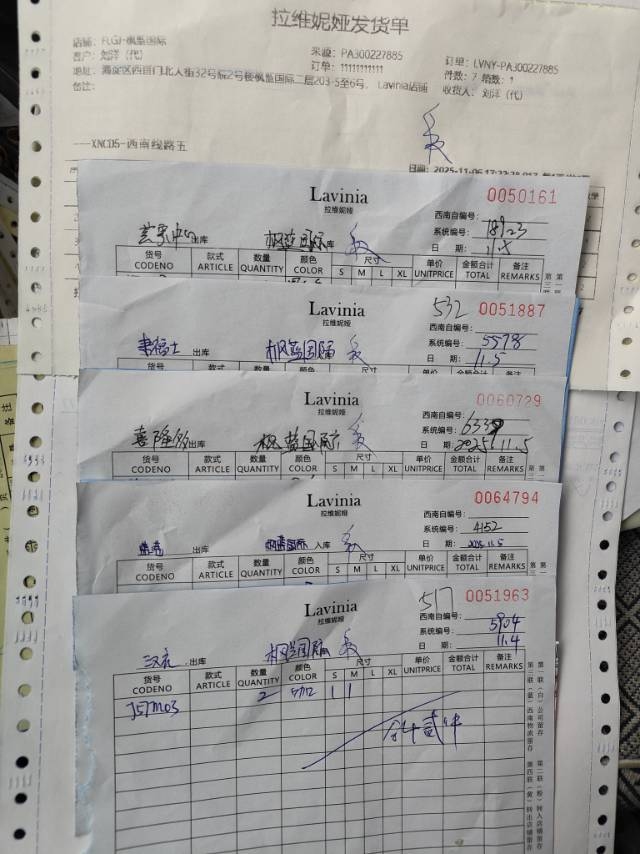 拉维妮娅发货单
店铺: FLGJ-枫蓝国际
客户: 刘洋（代）
地址: 海淀区西直门北大街32号院2号楼枫蓝国际二层203-5至6号, Lavinia店铺
备注:
来源: PA300227885
订单: 11111111111
订单: LVNY-PA300227885
件数: 7 箱数: 1
收货人: 刘洋（代）
---XNCD5-西南线路五
日期: 2025-11-06
Lavinia
拉维妮娅
0050161
出库 枫蓝国际
西南自编号:
系统编号: 18923
日 期: 11.5
货号 款式 数量 颜色 尺寸 单价 金额合计 备注
CODENO ARTICLE QUANTITY COLOR S M L XL UNITPRICE TOTAL REMARKS
Lavinia
拉维妮娅
532 0051887
出库 枫蓝国际
西南自编号:
系统编号: 5578
日 期: 11.5
货号 款式 数量 颜色 尺寸 单价 金额合计 备注
Lavinia
拉维妮娅
0060729
喜隆多 出库 枫蓝国际
西南自编号:
系统编号:
日 期: 2025.11.5
货号 款式 数量 颜色 尺寸 单价 金额合计 备注
CODENO ARTICLE QUANTITY COLOR S M L XL UNITPRICE TOTAL REMARKS
Lavinia
拉维妮娅
0064794
出库 枫蓝国际 入库
西南自编号:
系统编号: 4152
日 期: 2025.11.5
货号 款式 数量 颜色 尺寸 单价 金额合计 备注
CODENO ARTICLE QUANTITY COLOR S M L XL UNITPRICE TOTAL REMARKS
Lavinia
拉维妮娅
517 0051963
出库 枫蓝国际
西南自编号:
系统编号: 5904
日 期: 11.4
货号 款式 数量 颜色 尺寸 单价 金额合计 备注
CODENO ARTICLE QUANTITY COLOR S M L XL UNITPRICE TOTAL REMARKS
2 1 1
合计贰件
第一联（白）公司留存
第二联（粉）转入店铺留存
第三联（蓝）西南物流留存
第四联（黄）转出店铺留存